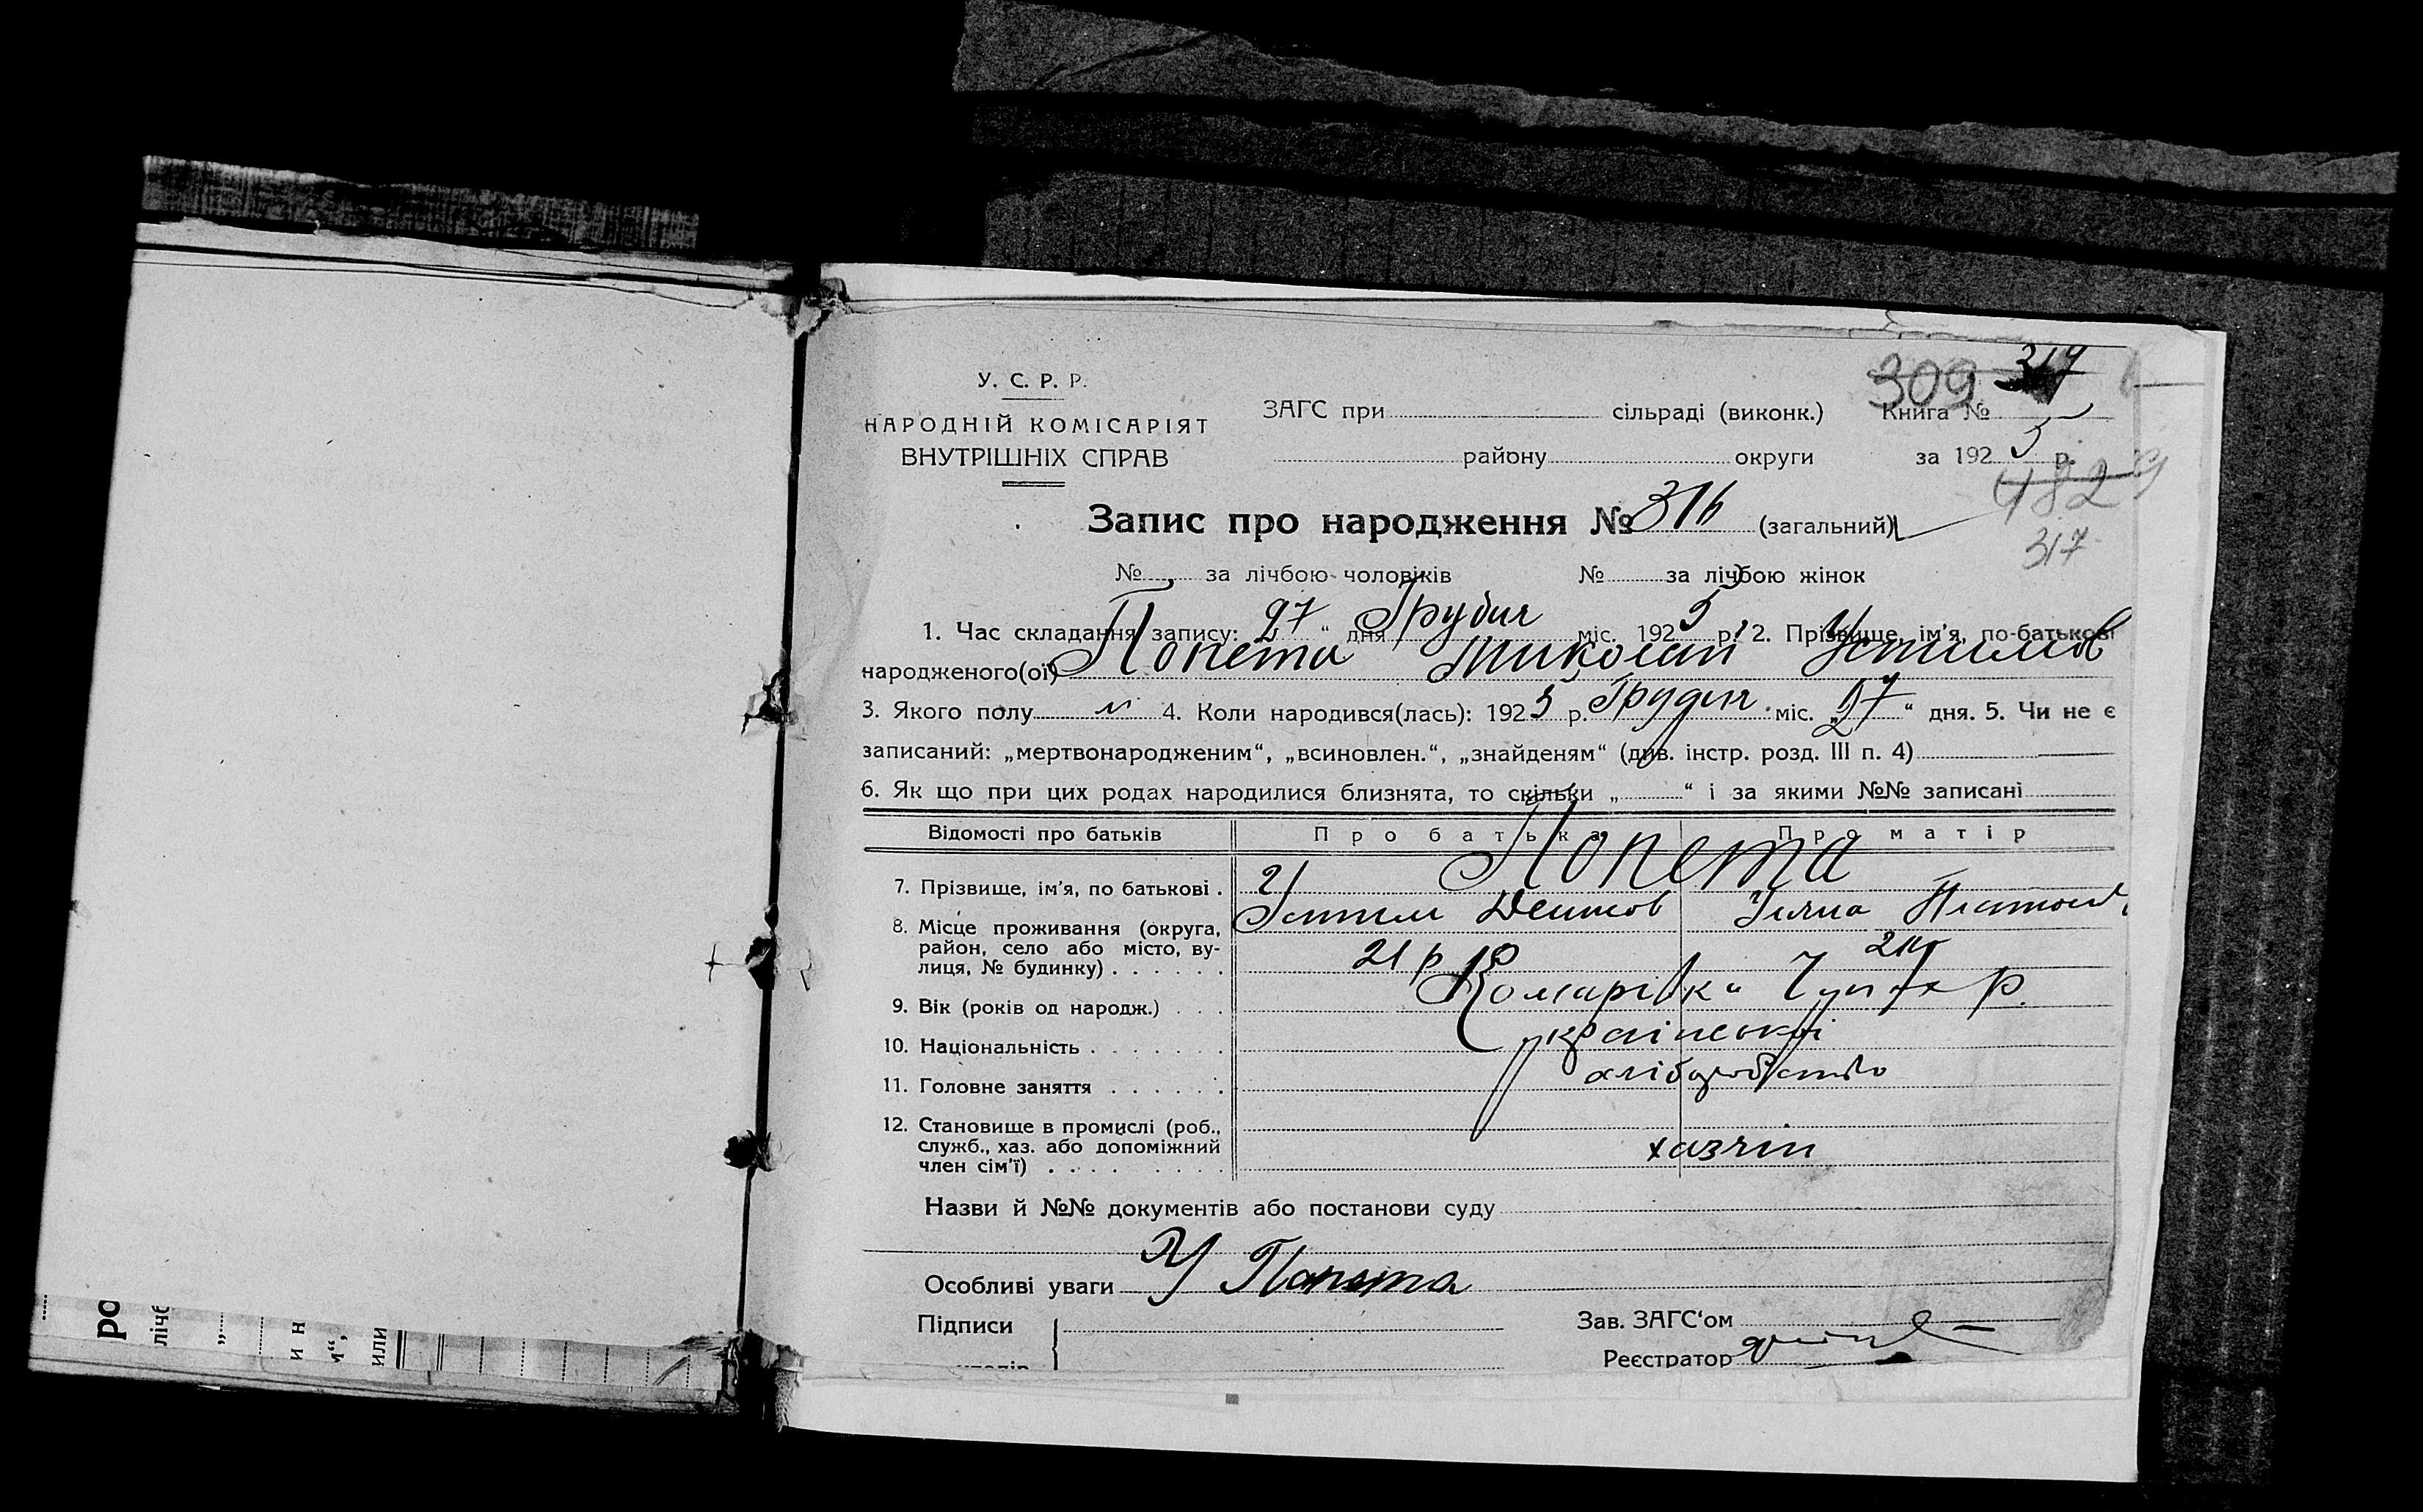 309 317
У. С. Р. Р.
НАРОДНІЙ КОМІСАРІЯТ
ВНУТРІШНІХ СПРАВ
ЗАГС при сільраді (виконк.) Книга №
району округи за 1925 р.
4829
317
Запис про народження № 316 (загальний)
№ за лічбою чоловіків № за лічбою жінок
1. Час складання запису: 27 “ дня Грудня міс. 1925 р. 2. Прізвище, ім’я, по-батькові
народженого(ої) Попета Миколай Устимов
3. Якого полу м 4. Коли народився(лась): 1925 р. Грудня міс. „27“ дня. 5. Чи не є
записаний: „мертвонародженим“, „всиновлен.“, „знайденям“ (див. інстр. розд. III п. 4)
6. Як що при цих родах народилися близнята, то скільки „ “ і за якими №№ записані
Відомості про батьків Про батька Про матір
7. Прізвище, ім’я, по батькові . Попета
Устим Уляна
8. Місце проживання (округа,
район, село або місто, ву-
лиця, № будинку) . . . . . . 21 р
9. Вік (років од народж.) . . . Комарівка р.
10. Національність . . . . . . . української
11. Головне заняття . . . . . . хліборобство
12. Становище в промислі (роб.,
служб., хаз. або допоміжний
член сім’ї) . . . . . . . . хазяїн
Назви й №№ документів або постанови суду
Особливі уваги У Папета
Підписи Зав. ЗАГС‘ом
Реєстратор
ро
лічб
и н
м“,
или